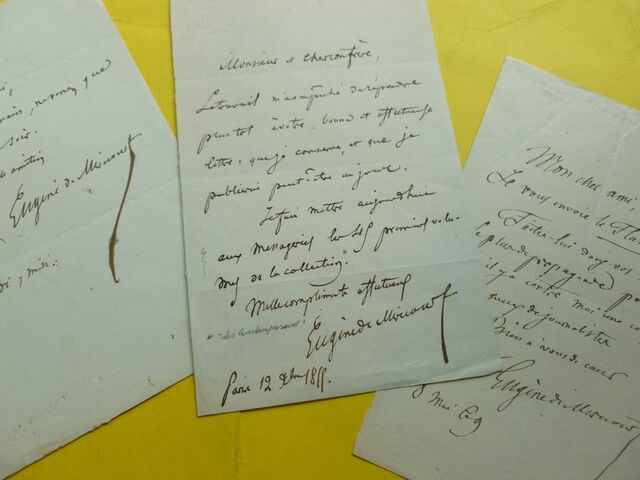 que
soir.
Eugène de Mirecourt
midi.
Monsieur et cher confrère,
Le travail m'a empêché de répondre
plus tôt à votre bonne et affectueuse
lettre, que je conserve, et que je
publierai peut-être un jour.
Je fais mettre aujourd'hui
aux Messageries les premiers volu-
mes de la collection.
"des Contemporains"
Mille compliments affectueux
Eugène de Mirecourt
Paris 12 Xbre 1855.
Mon cher ami
Je vous envoie le
Faites-lui dans vos
le plus de propagande
il y a contre moi une
de journalistes
Bien à vous de cœur
Eugène de Mirecourt
Mai 69